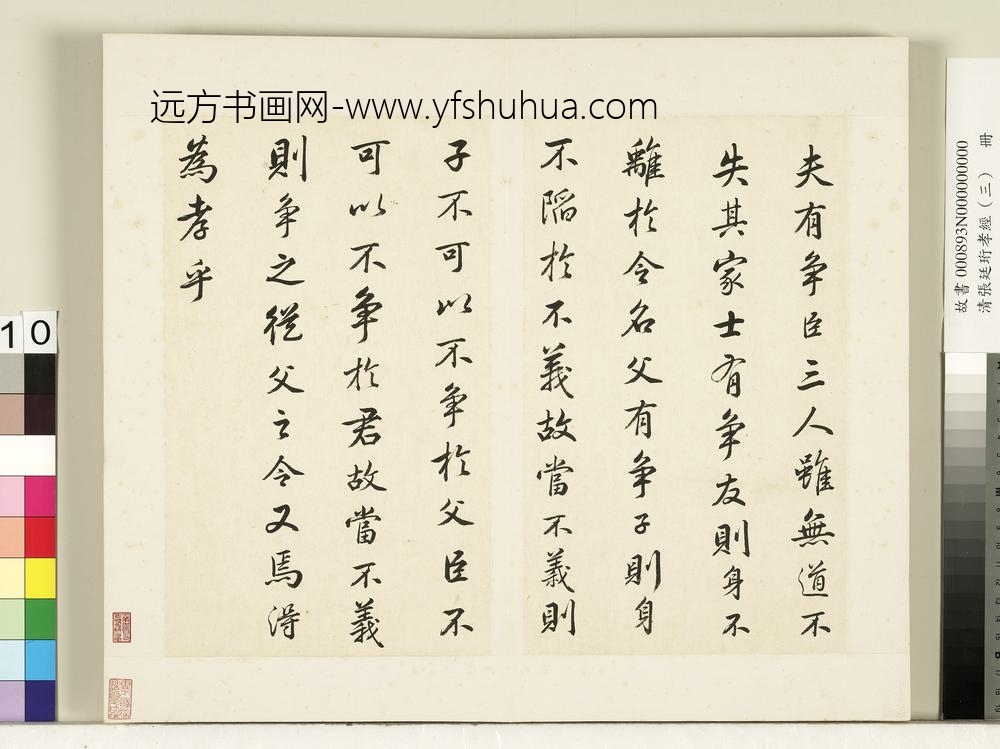 远方书画网-www.yfshuhua.com
夫有争臣三人雖無道不
失其家士有争友則身不
離於令名父有争子則身
不陷於不義故當不義則
子不可以不争於父臣不
可以不争於君故當不義
則争之從父之令又焉得
為孝乎
故書000893N000000000
清張廷珩孝經(三) 冊
10